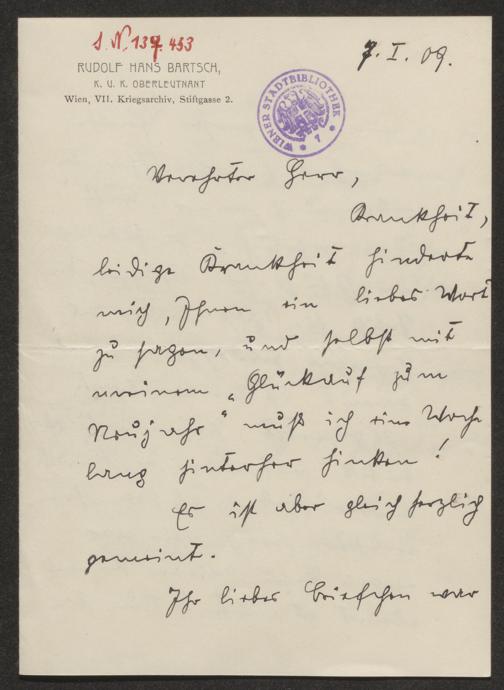 J. N. 137.453
7. I. 09.
RUDOLF HANS BARTSCH,
K. U. K. OBERLEUTNANT
Wien, VII. Kriegsarchiv, Stiftgasse 2.
WIENER STADTBIBLIOTHEK
Verehrter Herr,
Krankheit,
leidige Krankheit hinderte
mich, Ihnen ein liebes Wort
zu sagen, und selbst mit
meinem „Glückauf zum
Neujahr“ muß ich eine Woche
lang hinterher hinken!
Es ist aber gleich herzlich
gemeint.
Ihr liebes Briefchen war